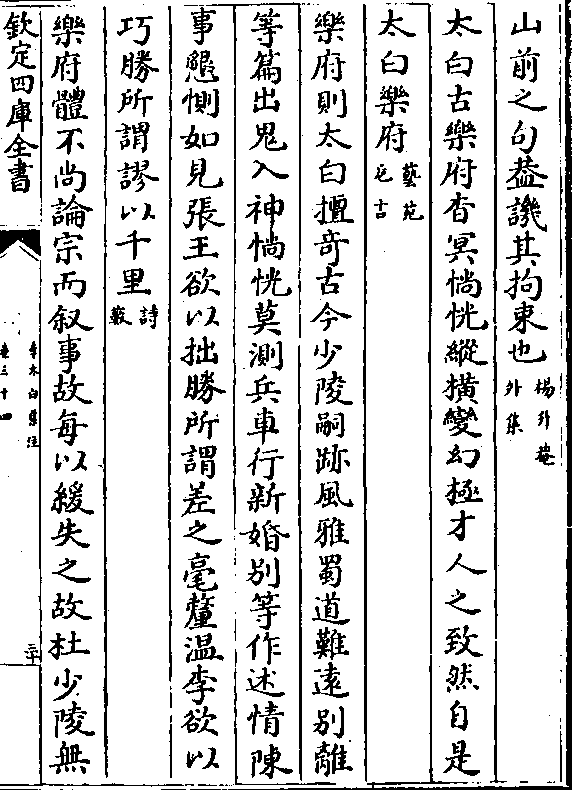 山前之句葢譏其拘束也楊升菴外集
太白古樂府杳冥惝恍縱橫變幻極才人之致然自是
太白樂府藝苑巵言
樂府則太白擅奇古今少陵嗣跡風雅蜀道難遠别離
等篇出鬼入神惝恍莫測兵車行新婚别等作述情陳
事懇惻如見張王欲以拙勝所謂差之毫釐温李欲以
巧勝所謂謬以千里詩藪
樂府體不尚論宗而叙事故每以緩失之故杜少陵無
欽定四庫全書
李太白集注
卷三十四
三十